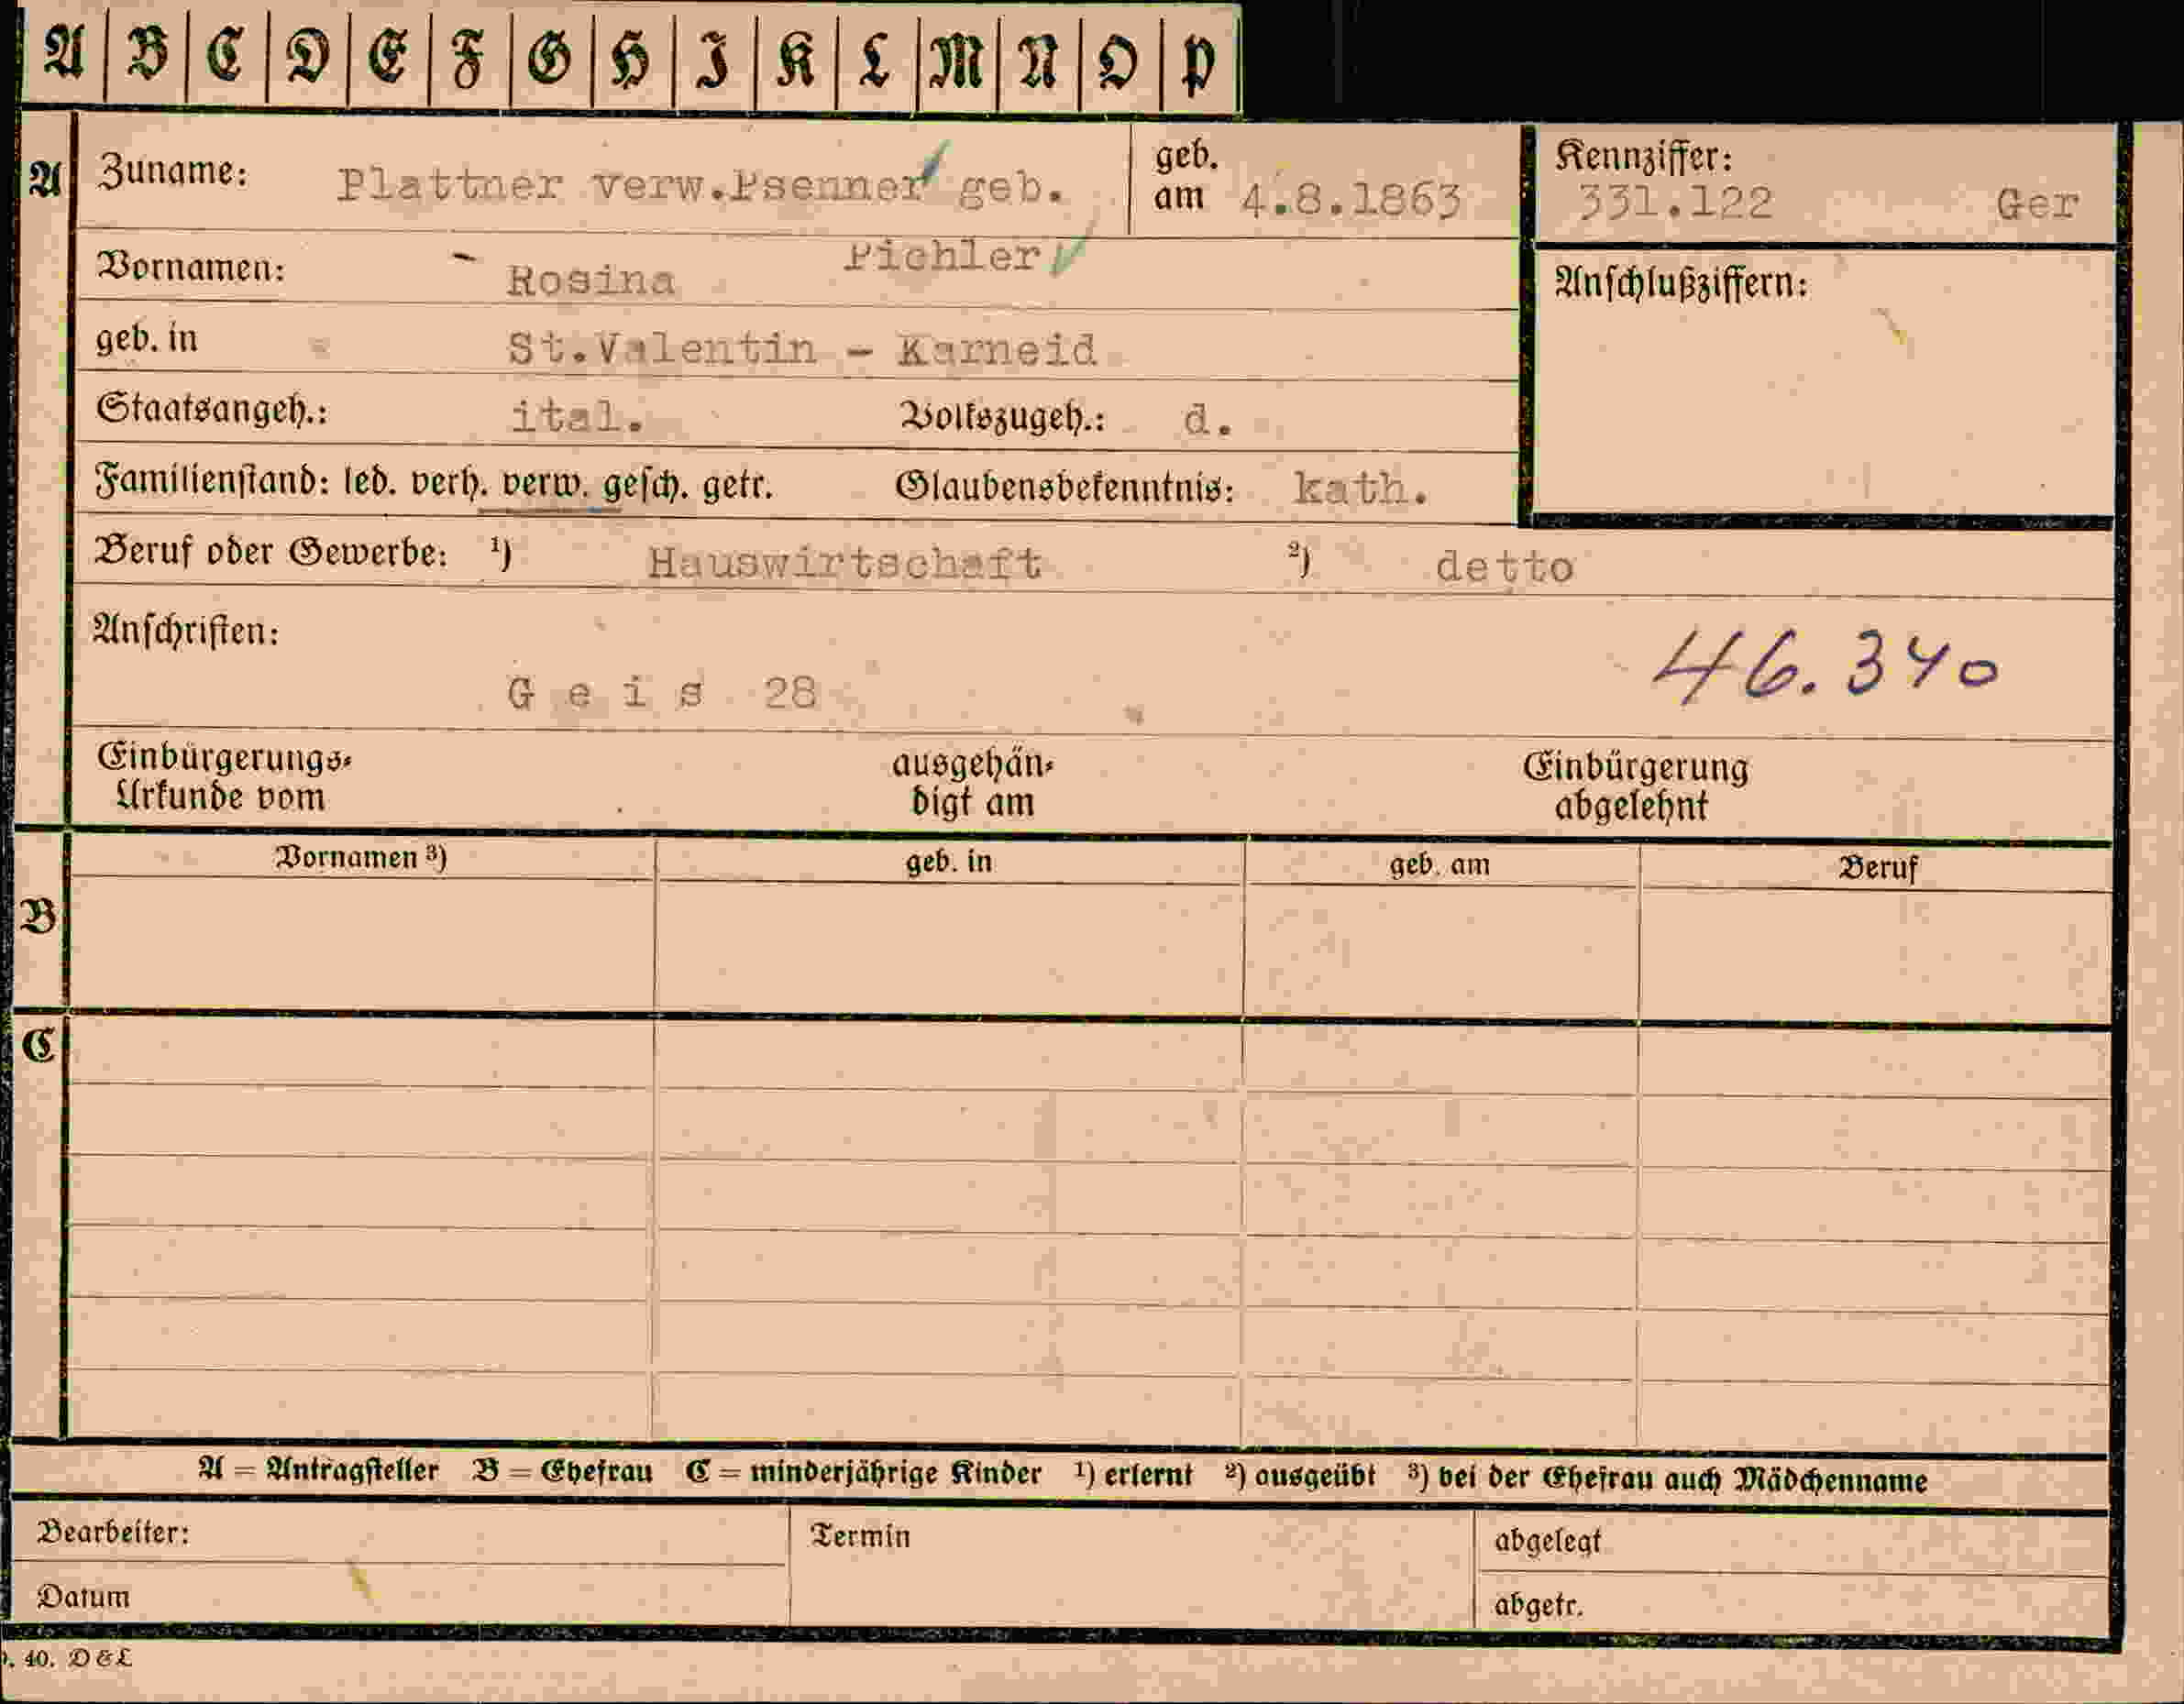 A B C D E F G H I K L M N O P
A Zuname: Plattner verw.Psenner geb. geb. am 4.8.1863 Kennziffer: 331.122 Ger
Vornamen: Rosina Pichler Anschlußziffern:
geb. in St.Valentin - Karneid
Staatsangeh.: ital. Volkszugeh.: d.
Familienstand: led. verh. verw. gesch. getr. Glaubensbekenntnis: kath.
Beruf oder Gewerbe: ¹) Hauswirtschaft ²) detto
Anschriften:
G e i s 28 46.340
Einbürgerungs- ausgehän- Einbürgerung
Urkunde vom digt am abgelehnt
Vornamen ³) geb. in geb. am Beruf
B
C
A = Antragsteller B = Ehefrau C = minderjährige Kinder ¹) erlernt ²) ausgeübt ³) bei der Ehefrau auch Mädchenname
Bearbeiter: Termin abgelegt
Datum abgetr.
40. D & L